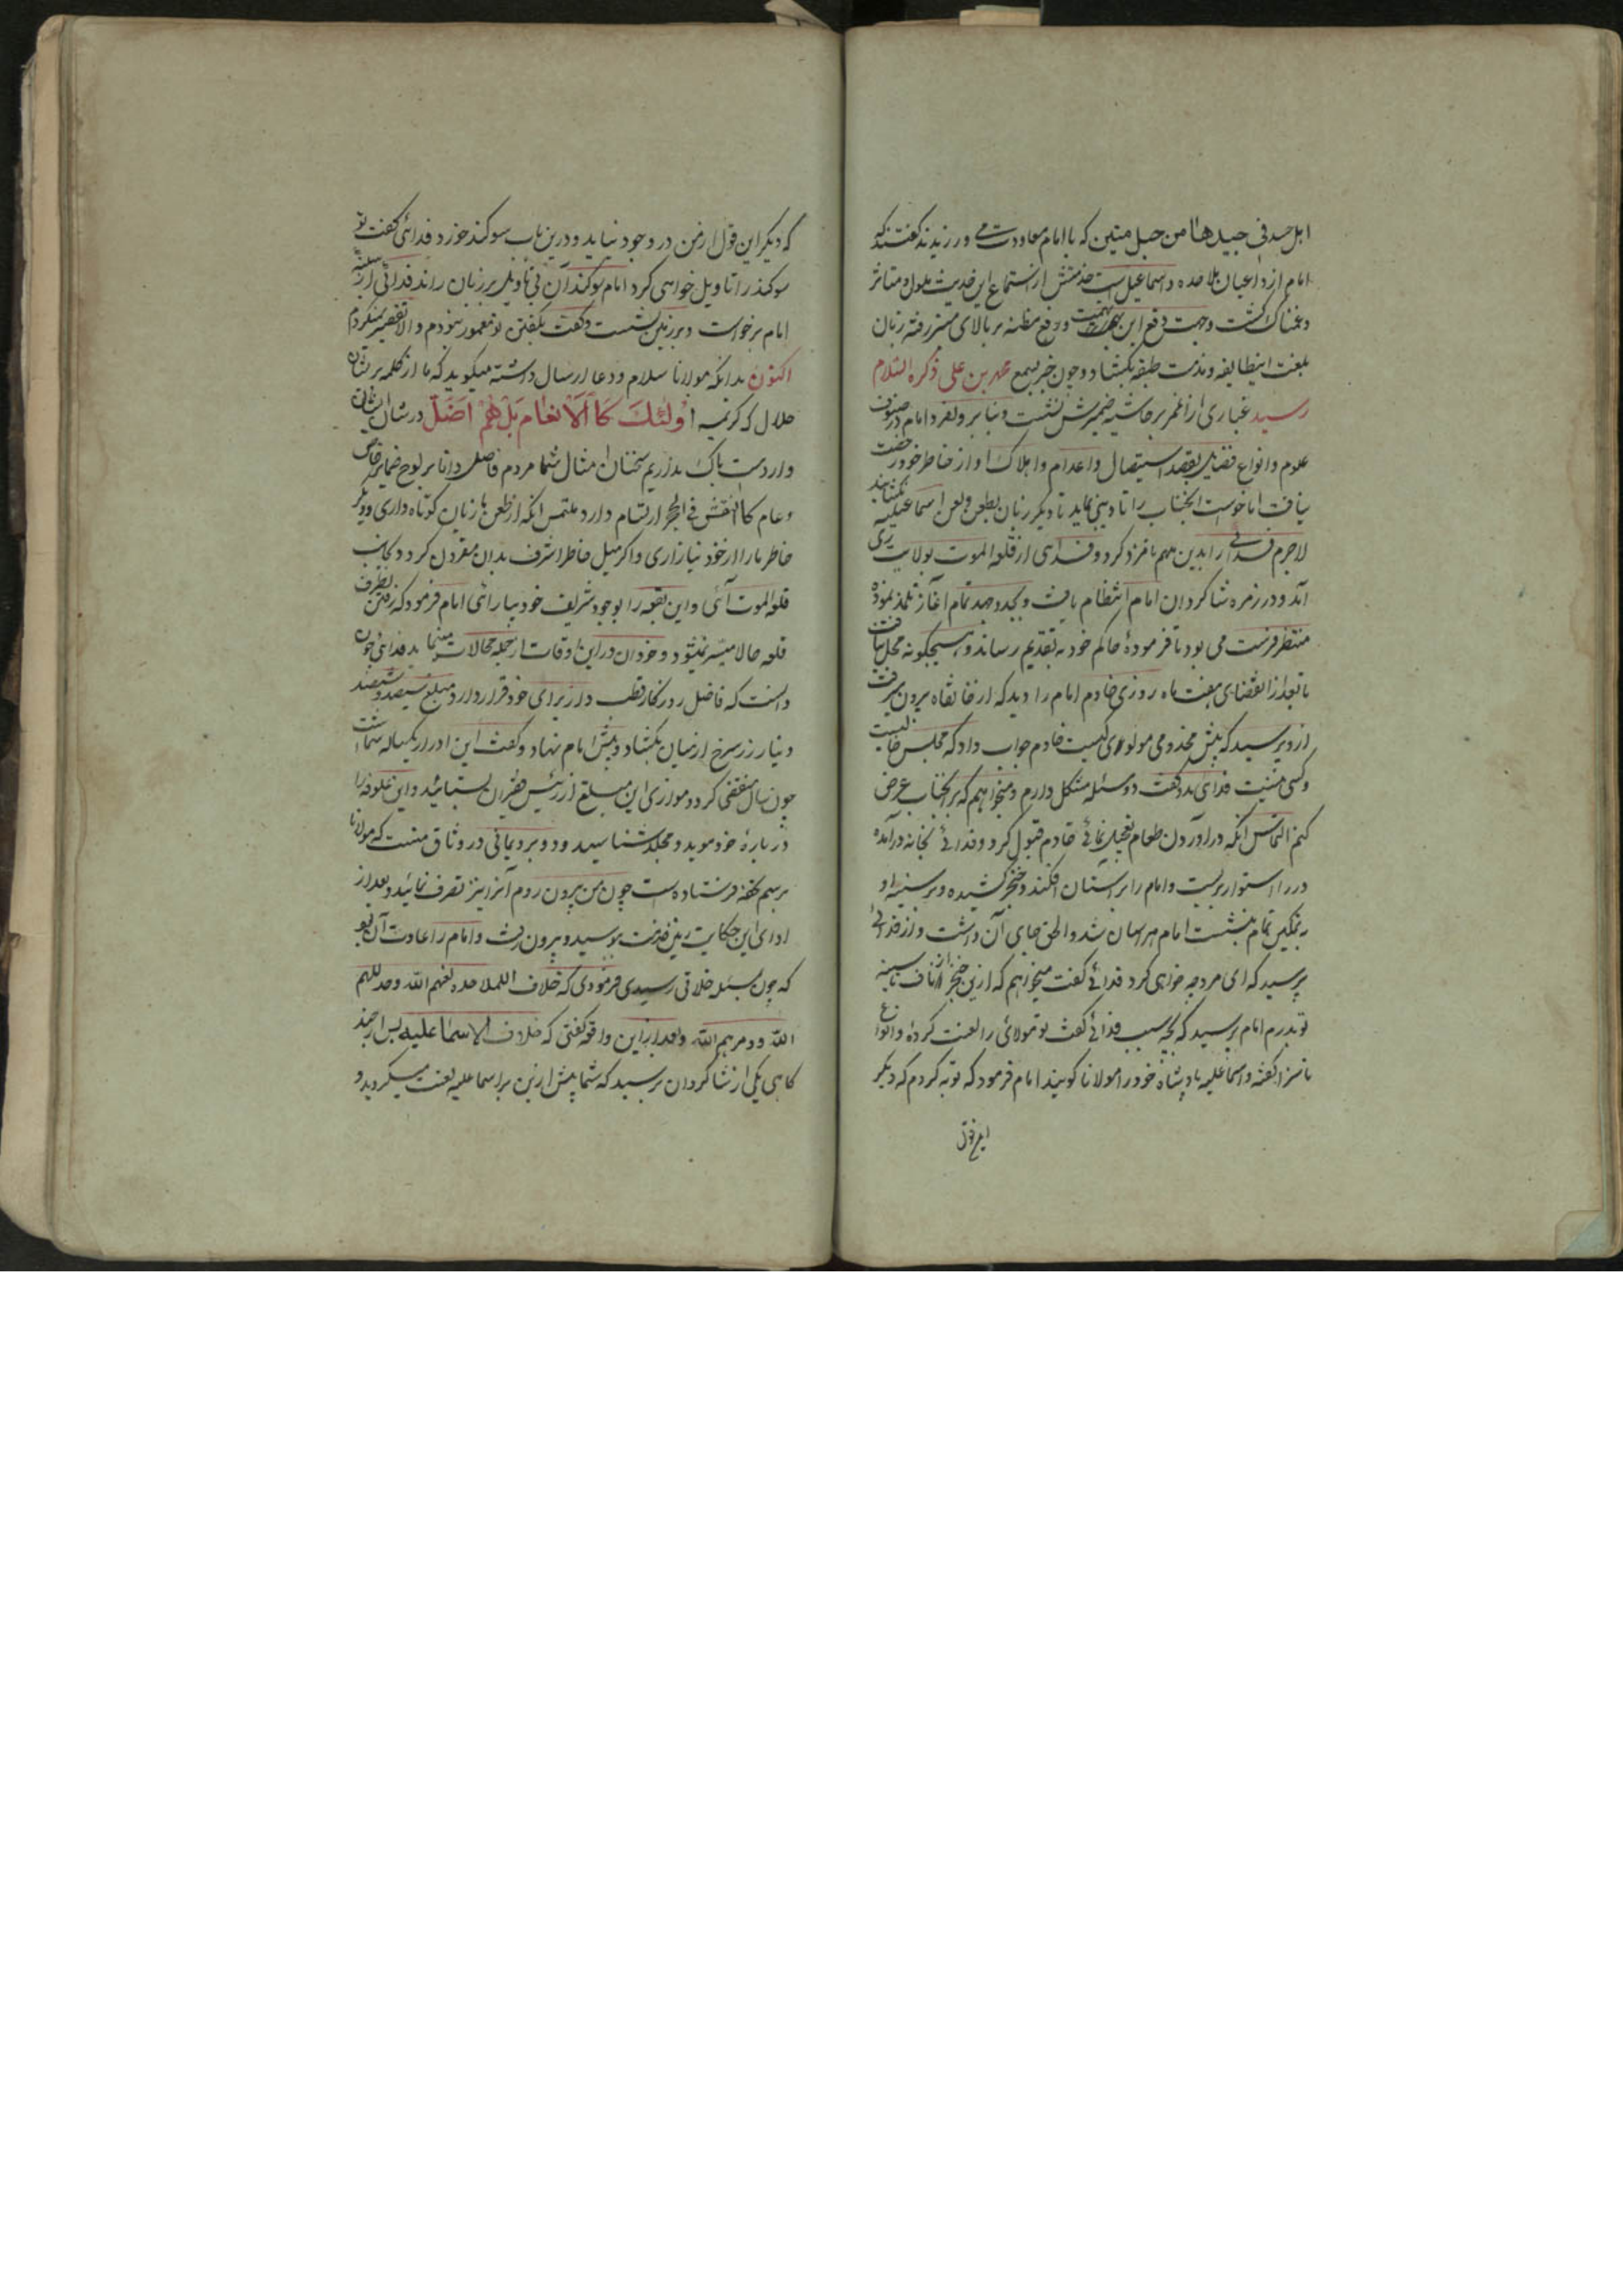 اهل حسد فی جیدها من حبل متین که با امام معاودت می ورزیدند گفتند که
امام از داعیان ملاحده و اسماعیل است خدمتش از استماع این حدیث ملول و متاثر
و غمناک گشت و جهت دفع این تهمت و رفع مظنه بر بالای منبر رفته زبان
بلعنت اینطایفه و مذمت طبقه بگشاد و چون خبر بسمع محمد بن علی ذکره السلام
رسید غباری از انمر بر حاشیه ضمیرش نشست و بنابر وفور امام در صنوف
علوم و انواع فضایل بقصد استیصال و اعدام و اهلاک او از خاطر خود رخصت
نیافت اما خواست که آنجناب را تادیبی نماید تا دیگر زبان بطعن و لعن اسماعیلیه نگشاید
لاجرم فدائی را بدین مهم نامزد کرد و فدایی از قلعه الموت بولایت ری
آمد و در زمره شاگردان امام انتظام یافت و بجد و جهد تمام آغاز تلمذ نموده
منتظر فرصت می بود تا فرموده حاکم خود به تقدیم رساند و هیچگونه مجال نیافت
تا بعد از انقضای هفت ماه روزی خادم امام را دید که از خانقاه بیرون میرفت
از و پرسید که پیش مخدومی مولوی کیست خادم جواب داد که مجلس خالیست
و کسی نیست فدای بدو گفت دو سئله مشکل دارم و میخواهم که بر آنجناب عرض
کنم التماس آنکه در آوردن طعام تعجیل ننمائی خادم قبول کرد و فدائی بخانه درآمده
در را استوار بربست و امام را بر آستان افکند و خنجر کشیده و بر سینه او
بتمکین تمام بنشست امام هراسان شد و الحق جای آن داشت و از فدائی
پرسید که ای مرد چه خواهی کرد فدائی گفت میخواهم که ازین خنجر از ناف تا سینه
تو بدرم امام پرسید که بچه سبب فدائی گفت تو مولای را لعنت کرده و انواع
ناسزا گفته و اسماعلیه پادشاه خود را مولانا گویند امام فرمود که توبه کردم که دیگر
که دیگر این قول از من در وجود نیاید و درین باب سوکند خورد فدائی گفت تو
سوکند را تاویل خواهی کرد امام سوکندان بی تاویل بر زبان راند فدائی از سینه
امام برخواست و بر زمین نشست و گفت بکشتن تو مامور نبودم و الا تقصیر نمیکردم
اکنون بدانکه مولانا سلام و دعا ارسال داشته میگوید که ما از کلمه پریشان
جلال که کریمه اولئک کالانعام بل هم اضل در شان ایشان
وارد است باک نداریم سخنان امثال شما مردم فاضل و دانا بر لوح ضمایر خاص
و عام کالنقش فی الحجر ارتسام دارد ملتمس آنکه از طعن ما زبان کوتاه داری و دیگر
خاطر ما را از خود نیازاری و اکر میل خاطر اشرف بدان مقرون کردد بجانب
قلعه الموت آئی و این بقعه را بوجود شریف خود بیارائی امام فرمود که رفتن بطرف
قلعه حالا میسر نمیشود و خود آن در این اوقات از جمله محالات مینماید فدائی چون
دانست که فاضل روزکار قطب وار برای خود قرار دارد مبلغ سیصد و شصت
دینار زر سرخ از میان بکشاد و پیش امام نهاد و گفت این ادرار یکساله شماست
چون سال منقضی کردد موازی این مبلغ از رئیس حضران بستانید و این علوفه را
در باره خود موید و مخلد شناسید و دو برد یمانی در وثاق منست که مولانا
برسم تحفه فرستاده است چون من بیرون روم آنرا نیز تصرف نمائید و بعد از
ادای این حکایت زمین خدمت بوسید و بیرون رفت و امام را عادت آن بود
که چون مسئله خلافی رسیدی فرمودی که خلاف الملاحده لعنهم الله و خذلهم
الله و دمرهم الله و بعد از این واقعه گفتی که خلاف الاسماعلیه پس از چند
گاهی یکی از شاگردان پرسید که شما پیش از این بر اسماعلیه لعنت میکردید و